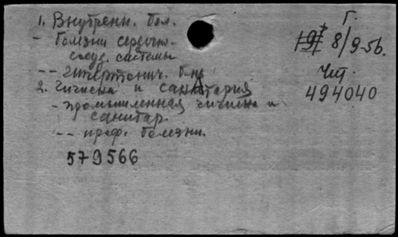 1. Внутренн. бол.
- Болезни сердечно-
сосуд. системы
-- Гипертонич. б-нь
2. Гигиена и санитария
- промышленная гигиена и
санитар.
-- проф. болезни.
579566
Г.
8/9-56.
Чит.
494040